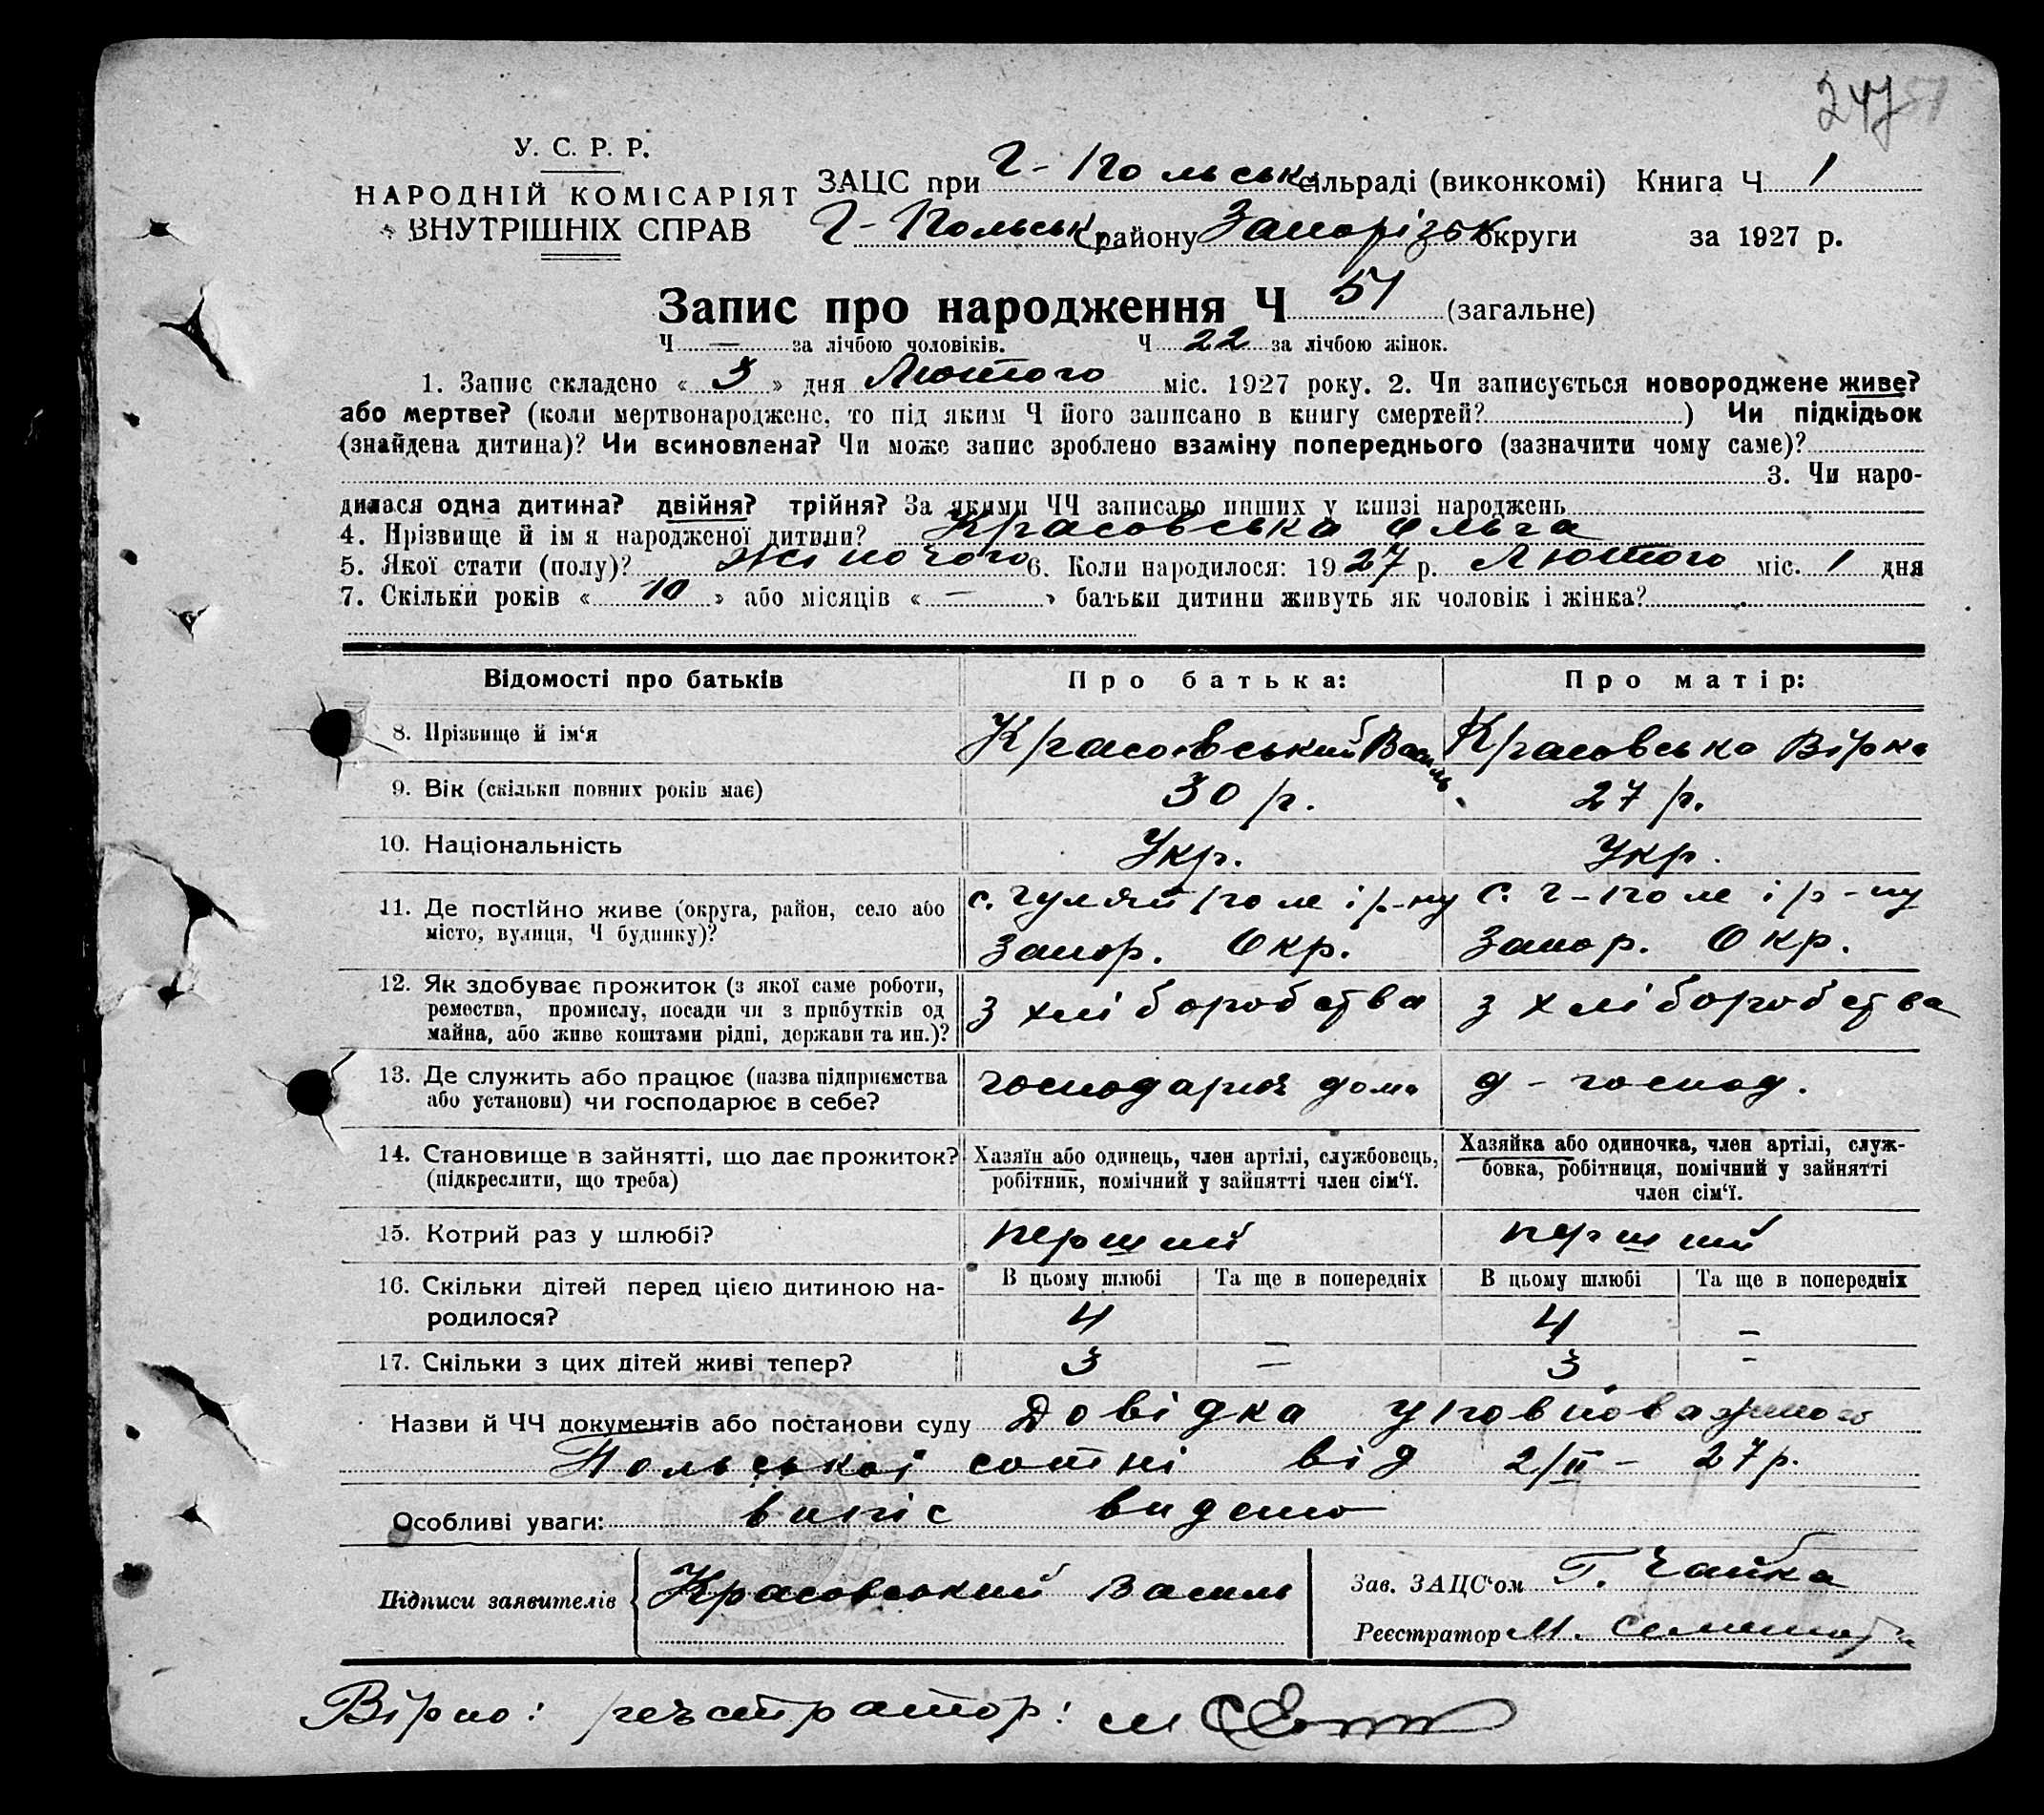 247 51
У. С. Р. Р.
НАРОДНІЙ КОМІСАРІЯТ
ВНУТРІШНІХ СПРАВ
ЗАЦС при Г-Польськ сільраді (виконкомі) Книга Ч 1
Г-Польськ району Запорізьк округи за 1927 р.
Запис про народження Ч 51 (загальне)
Ч — за лічбою чоловіків. Ч 22 за лічбою жінок.
1. Запис складено « 3 » дня Лютого міс. 1927 року. 2. Чи записується новороджене живе?
або мертве? (коли мертвонароджене, то під яким Ч його записано в книгу смертей? ) Чи підкідьок
(знайдена дитина)? Чи всиновлена? Чи може запис зроблено взаміну попереднього (зазначити чому саме)?
3. Чи наро-
дилася одна дитина? двійня? трійня? За якими ЧЧ записано инших у книзі народжень
4. Прізвище й ім я народженої дитини? Красовська Ольга
5. Якої стати (полу)? жіночого 6. Коли народилося: 1927 р. Лютого міс. 1 дня
7. Скільки років « 10 » або місяців « — » батьки дитини живуть як чоловік і жінка?
Відомості про батьків Про батька: Про матір:
8. Прізвище й ім'я Красовський Василь Красовська Вірка
9. Вік (скільки повних років має) 30 р. 27 р.
10. Національність Укр. Укр.
11. Де постійно живе (округа, район, село або с. Гуляй поле і р-ну с. Г-поле і р-ну
місто, вулиця, Ч будинку)? Запор. Окр. Запор. Окр.
12. Як здобуває прожиток (з якої саме роботи,
ремества, промислу, посади чи з прибутків од з хліборобства з хліборобства
майна, або живе коштами рідні, держави та ин.)?
13. Де служить або працює (назва підприємства господарює дома д-господ.
або установи) чи господарює в себе?
14. Становище в зайнятті, що дає прожиток? Хазяїн або одинець, член артілі, службовець, Хазяйка або одиночка, член артілі, служ-
(підкреслити, що треба) робітник, помічний у зайнятті член сім'ї. бовка, робітниця, помічний у зайнятті
член сім'ї.
15. Котрий раз у шлюбі? перший перший
16. Скільки дітей перед цією дитиною на- В цьому шлюбі Та ще в попередніх В цьому шлюбі Та ще в попередніх
родилося? 4 4 —
17. Скільки з цих дітей живі тепер? 3 — 3 -
Назви й ЧЧ документів або постанови суду Довідка уповноваженого
Польської сотні від 2/II – 27 р.
Особливі уваги: випіс видано
Підписи заявителів Красовський Василь Зав. ЗАЦС'ом Г. Чайка
Реєстратор М.
Вірно: реєстратор: М